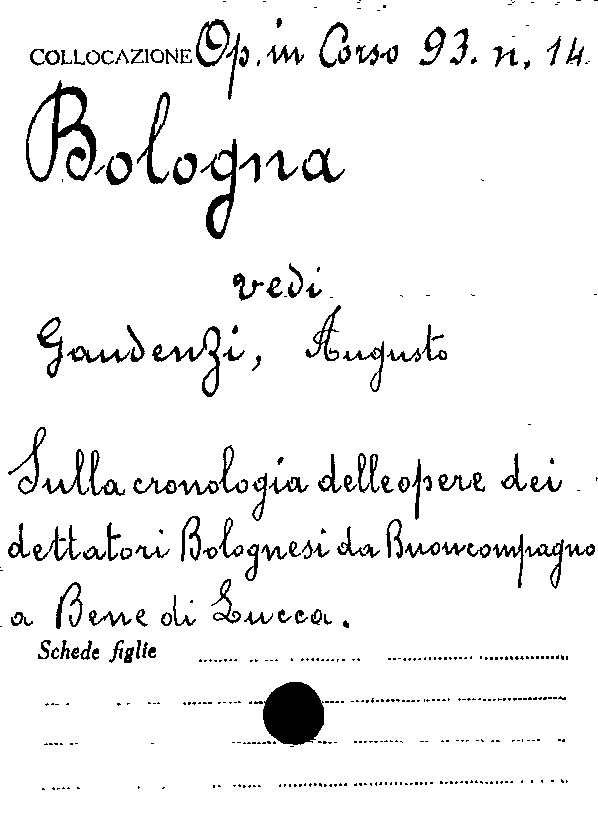 COLLOCAZIONE Op. in Corso 93. n. 14
Bologna
vedi
Gaudenzi, Augusto
Sulla cronologia delle opere dei
dettatori Bolognesi da Buoncompagno
a Bene di Lucca.
Schede figlie